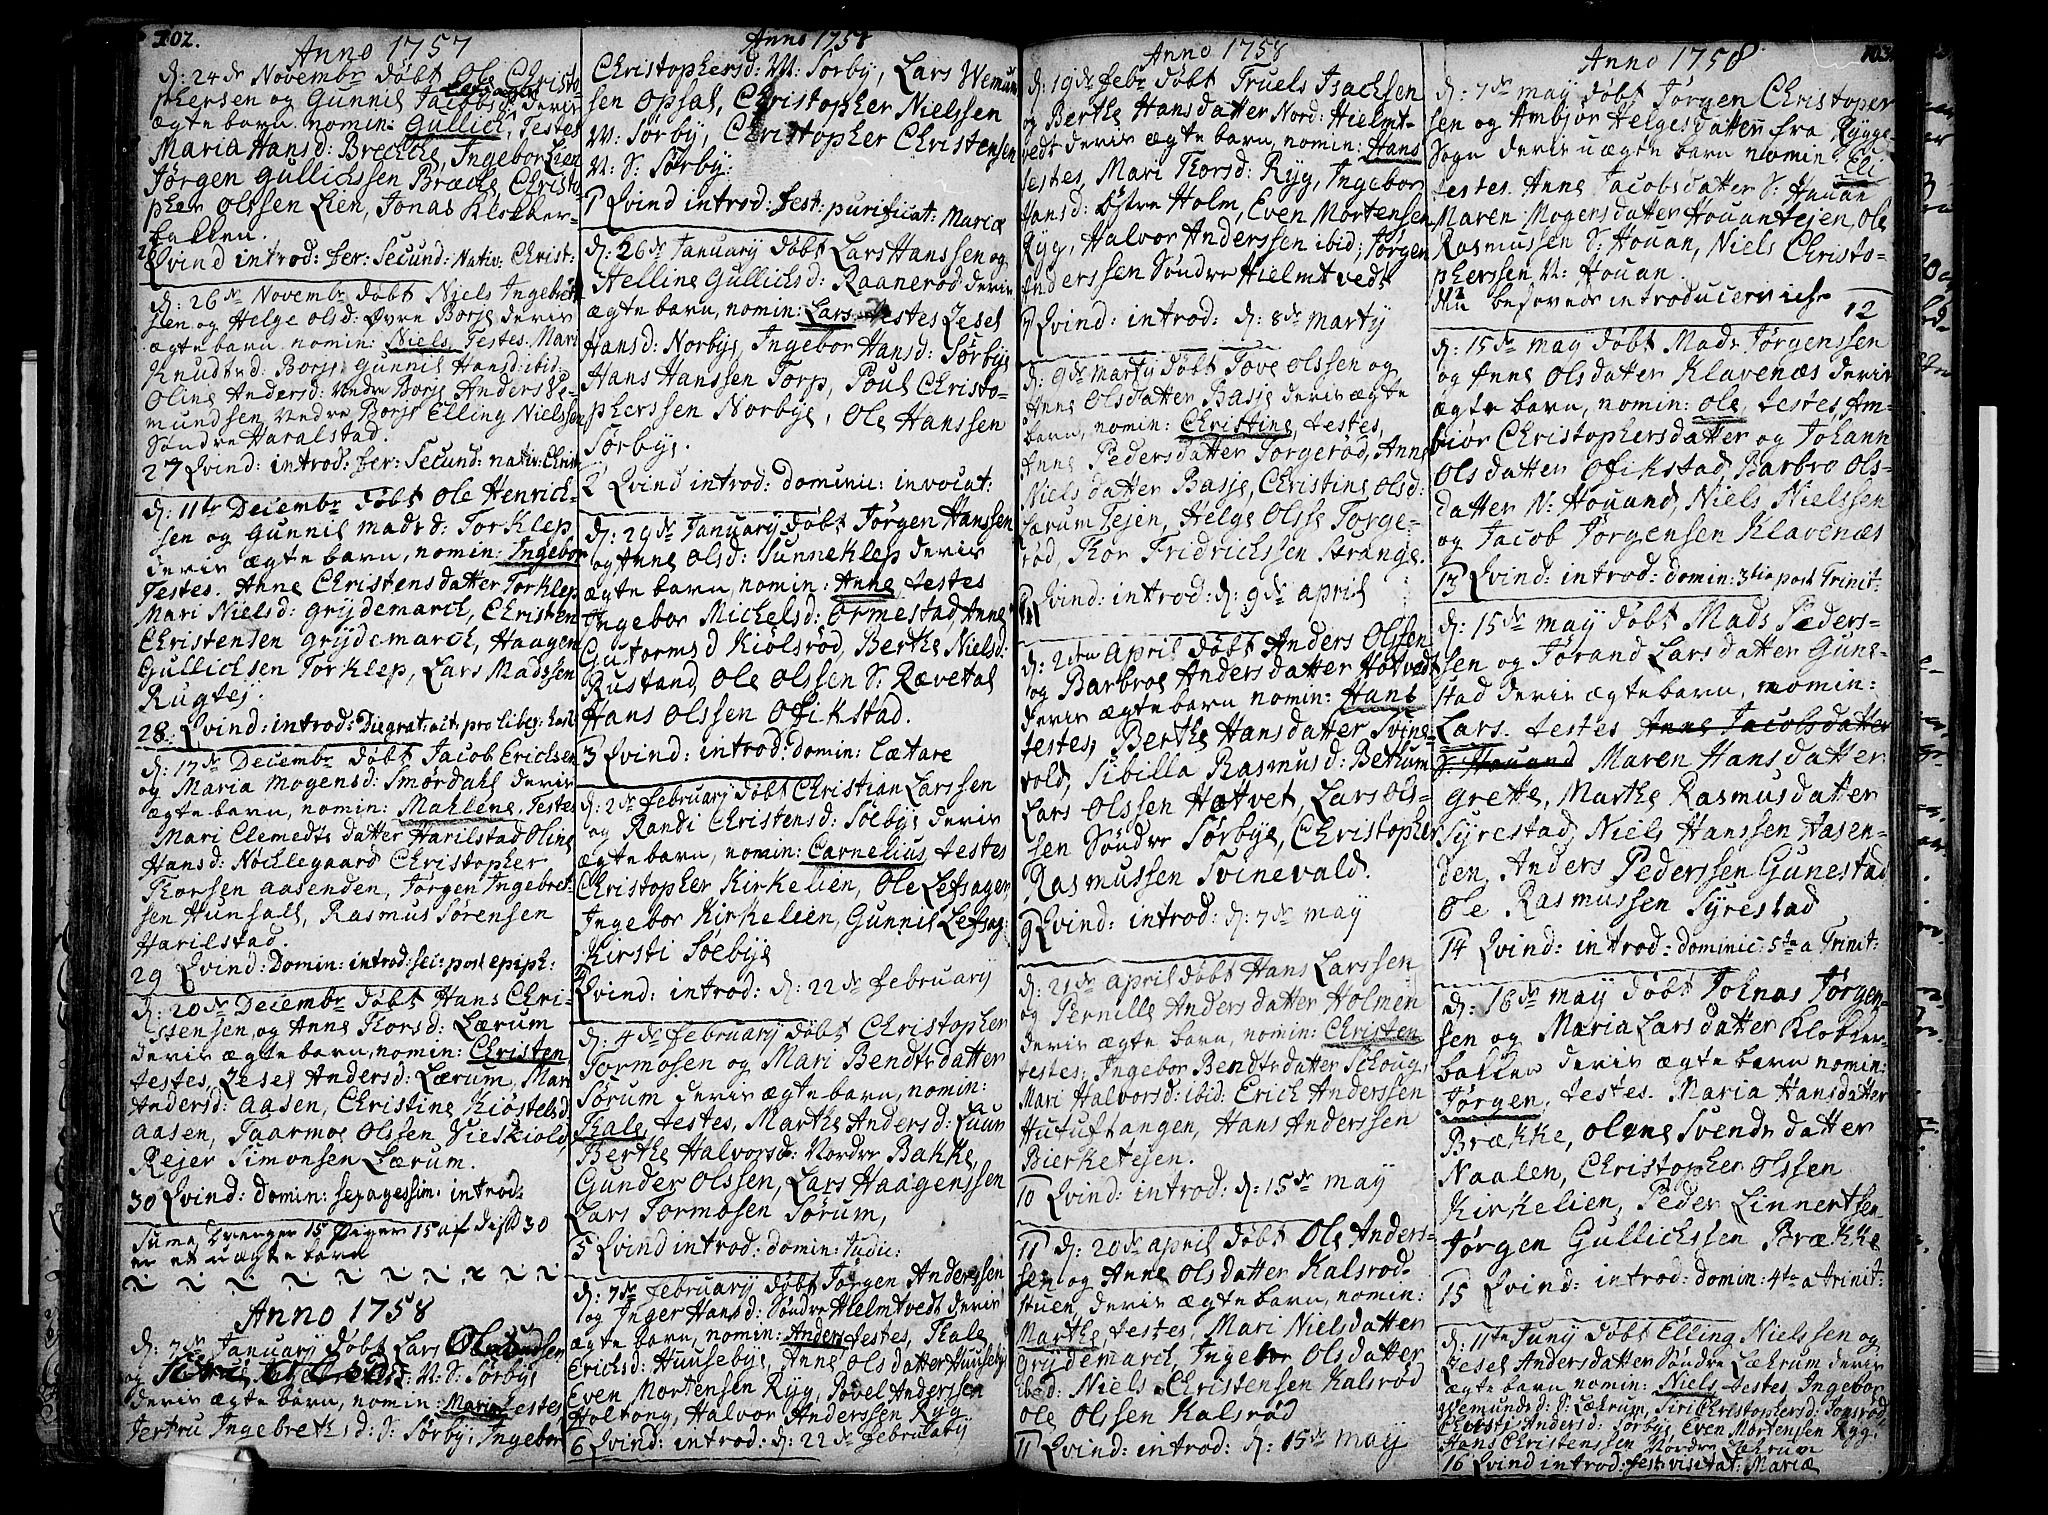 102.
Anno 1757
d: 24de Novembr døbt Ole Christo-
phersen og Gunnil Jacobsd: Lefsager deris
ægte barn nomin: Gullich, Testes
Maria Hansd: Brecke, Ingebor Lien
Jørgen Gullichssen Bræcke Christo-
pher Olssen Lien, Jonas Klokker-
bakken.
Qvind introd: fer: Secund: Nativ: Christ:
d: 26de Novembr døbt Niels Ingebret-
ssen og Helge olsd: Øvre Borje deris
ægte barn nomin: Niels, Testes. Mari
Knudtsd: Borje Gunnil Hansd: ibid:
Oline Andersd: Nedre Borje Anders We-
mundsen Nedre Borje Elling Nielssen
Søndre Haralstad.
27 Qvind: introd: fer: Secund: nativ: Christ
d: 11te Decembr døbt Ole Henrich-
sen og Gunnil madsd: Torklep
deris ægte barn, nomin: Ingebor
Testes. Anne Christensdatter Torklep
Mari Nielsd: Grydemarck, Christen
Christensen Grydemarck, Haagen
Gullichsen Torklep, Lars Madssen
Rugtej.
28. Qvind: introd:
d: 17de Decembr døbt Jacob Erichsen
og Maria Mogensd: Smørdahl deris
ægte barn, nomin: Mahlene, Testes
Mari Clemedts datter Harilstad Oline
Hansd: Nøcklegaard Christopher
Thorsen Aasenden, Jørgen Ingebret-
sen Hunsall, Rasmus Sørensen
Harilstad.
29 Qvind: Domin: introd: sei: post epiph:
d: 20de Decembr døbt Hans Chri-
stensen, og Anne Thorsd: Lærum
deris ægte barn, nomin: Christen
testes, Zesel Andersd: Lærum, Mari
Andersd: Aasen, Christine Kiøstelsd
Aasen, Taarmoe Olssen Vieskiold,
Rejer Simonsen Lærum.
30 Qvind: domin: sexagessim: introd:
Suma, Drenger 15, Piger 15 af disse 30
er et uægte barn
Anno 1758
d: 7de January døbt Lars
og N: S: Sørbye
deris ægte barn, nomin: Maria testes
Jertru Ingebrethsd: S: Sørby, Ingebor
Anno 1758
Christophersd: N: Sørby, Lars Wemun-
sen Opsal, Christopher Nielssen
N: Sørby, Christopher Christensen
N: S: Sørby:
1 Qvind introd: fest: purificat: Mariæ
d: 26de January døbt Lars Hanssen og
Helline Gullichsd: Raanerød deris
ægte barn, nomin: Lars testes Zesel
Hansd: Norbye, Ingebor Hansd: Sørbye
Hans Hanssen Torp, Poul Christo-
pherssen Norbye, Ole Hanssen
Sørbye.
2 Qvind introd: dominic: invocat:
d: 29de January døbt Jørgen Hanssen
og Anne Olsd: Sunneklep deris
ægte barn, nomin: Anne testes
Ingebor Michelsd: Ormestad Anne
Gutormsd Kiølsrød, Berthe Nielsd:
Rustand Ole Olssen S: Rævetal
Hans Olssen Ofikstad.
3 Qvind: introd: domin: Lætare
d: 2de February døbt Christian Larssen
og Randi Christensd: Soebye deris
ægte barn, nomin: Carnelius, testes
Christopher Kirkelien, Ole Lefsager
Ingebor Kirkelien, Gunnil Lefsag:
Kirsti Soebye
Qvind: introd: d: 22de February
d: 4de February døbt Christopher
Tormosen og Mari Bendtsdatter
Sørum deris ægte barn, nomin:
Thale, testes, Marthe Andersd: Luur
Berthe Halvorsd: Nordre Bakke,
Gunder Olssen, Lars Haagenssen
Lars Tormosen Sørum,
5 Qvind introd: domin: Judic:
d: 7de February døbt Jørgen Anderssen
og Inger Hansd: Søndre Hielmtvedt deris
ægte barn, nomin: Anders testes, Thale
Erichsd: Huusebye, Anne Olsdatter Huuseby
Even Mortensen Ryg, Povel Anderssen
Holtong, Halvor Anderssen Ryg
6 Qvind: introd: d: 22de february
Anno 1758
d: 19de febr døbt Truels Isachsen
og Berthe Hansdatter Nord: Hielmt-
vedt deris ægte barn, nomin: Hans
testes, Mari Thorsd: Ryg, Ingebor
Hansd: Østre Holm, Even Mortensen
Ryg, Halvor Anderssen ibid; Jørgen
Anderssen Søndre Hielmtvedt
7 Qvind: introd: d: 8de marty
d: 9de marty døbt Tove Olssen og
Anne Olsdatter Basje deris ægte
barn, nomin: Christine, testes,
Anne Pedersdatter Torgerød, Anne
Nielsdatter Basje, Christine Olsd:
Lærum Tejen, Helge Olsse Torge-
rød, Thor Fridrichssen Strange.
Qvind: introd: d: 9de april
d: 2den April døbt Anders Olssen
og Barbroe Andersdatter Høtvedt
deris ægte barn nomin: Hans
testes, Berthe Hansdatter Svine-
vold, Sibilla Rasmusd: Bettum
Lars Olssen Hætvet, Lars ols-
sen Søndre Sørbye, Christopher
Rasmussen Svinevald.
9 Qvind: introd: d: 7de may
d: 21de april døbt Hans Larssen
og Pernille Andersdatter Holmen
deris ægte barn, nomin: Christen
testes, Ingebor Bendtsdatter Schoug,
Mari Halvorsd: ibid: Erich Anderssen
Hutuftangen, Hans Anderssen
Bierketejen.
10 Qvind: introd: d: 15de may
11 d: 20de april døbt Ole Anders-
sen og Anne Olsdatter Kalsrød-
stuen, deris ægte barn, nomin:
Marthe, testes, Mari Nielsdatter
Grydemarck, Ingebor Olsdatter
ibed: Niels Christensen Kalsrød
Ole Olssen Kalsrød
11 Qvind: introd: d: 15de may
103.
Anno 1758
d: 7de may døbt Jørgen Christopher
sen og Ambjør Helgesdatter fra Rygge
Sogn deris uægte barn nomin: Eli
testes Anne Jacobsdatter S: Houan
Maren Mogensdatter Houantejen, Ole
Rasmussen S: Houan, Niels Christo-
pherssen N: Houan.
Hun befovede introducers iche 12
d: 15de may døbt Mads Jørgenssen
og Anne Olsdatter Klavenæs deris
ægte barn, nomin: Ole, testes, Am-
biør Christophersdatter og Johann
Olsdatter Ofikstad Barbro Ols-
datter N: Houand, Niels Nielssen
og Jacob Jørgensen Klavenæs
13 Qvind: introd: domin: 3tia post Trinit:
d: 15de may døbt Mads Peder-
sen og Jørand Larsdatter Gune-
stad deris ægte barn, nomin:
Lars. testes Anne Jacobsdatter
S: Houand Maren Hansdatter
Grette, Marthe Rasmusdatter
Syrestad, Niels Hanssen Aasen-
den, Anders Pederssen Gunestad
Ole Rasmussen Syrestad
14 Qvind: introd: dominic: 5ta a Trinit:
d: 16de may døbt Johnas Jørgen-
sen og Maria Larsdatter Klokker-
bakken deris ægte barn nomin:
Jørgen, testes. Maria Hansdatter
Brække, Olene Svends datter
Naalen, Christopher Olssen
Kirkelien, Peder Linnertsen
Jørgen Gullichssen Brække
15 Qvind: introd: domin: 4ta a trinit:
d: 11te Juny døbt Elling Nielssen og
Zesel Andersdatter Søndre Lækrum deris
ægte barn, nomin: Niels testes, Ingebor
Wemundsd: S: Lækrum, Siri Christophersd: Sogsrød
Christi Andersd: Sørby, Even Mortensen Ryg,
Hans Christenssen Nordre Lækrum
16 Qvind introd: fest: visitat: Mariæ